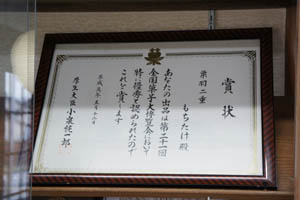 賞状
栗羽二重
もちたけ殿
あなたの出品は第二十一回
全国菓子大博覧会において
特に優秀と認められたので
これを賞します
平成元年五月十六日
厚生大臣 小泉純一郎